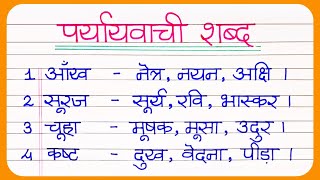 पर्यायवाची शब्द
1 आँख - नेत्र, नयन, अक्षि ।
2 सूरज - सूर्य, रवि, भास्कर ।
3 चूहा - मूषक, मूसा, उदुर ।
4 कष्ट - दुख, वेदना, पीड़ा ।